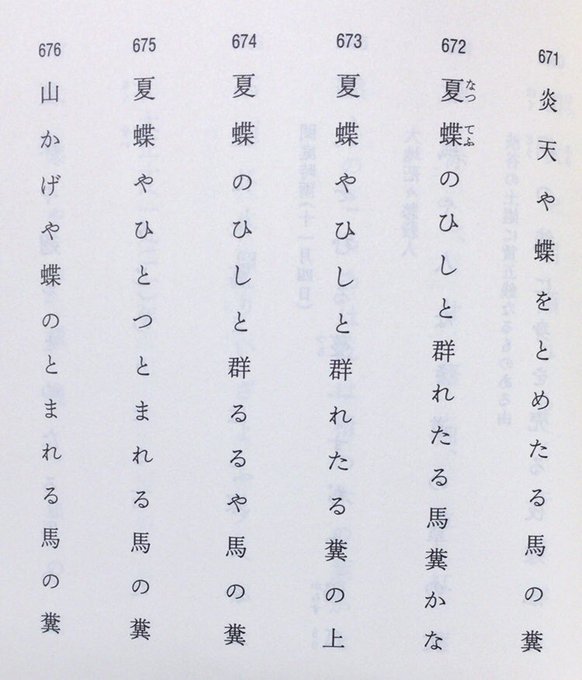 671
炎天や蝶をとめたる馬の糞
672
夏蝶のひしと群れたる馬糞かな
なつ
てふ
673
夏蝶やひしと群れたる糞の上
674
夏蝶のひしと群るるや馬の糞
675
夏蝶やひとつとまれる馬の糞
676
山かげや蝶のとまれる馬の糞